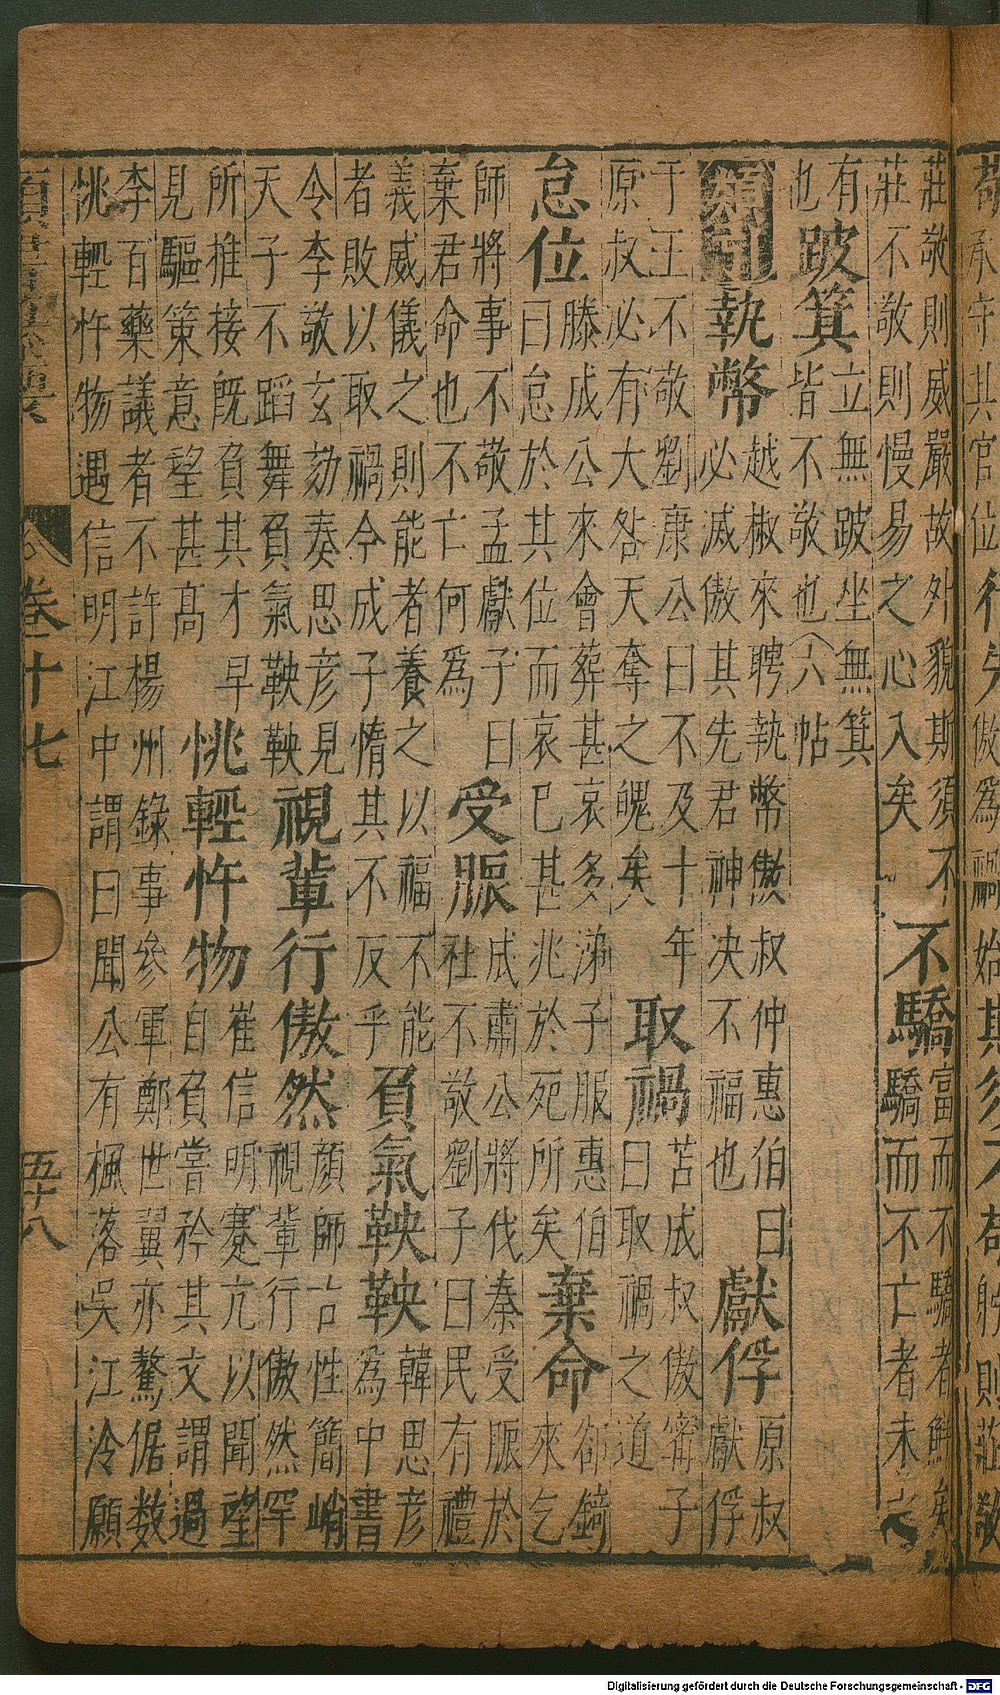 莊敬則威嚴故外貌斯須不
莊不敬則慢易之心入矣
不驕
富而不驕者鮮矣
驕而不亡者未之
有
也
跛箕
立無跛坐無箕
皆不敬也六帖
類引
執幣
越椒來聘執幣傲叔仲惠伯曰
必滅傲其先君神决不福也
獻俘
原叔
獻俘
于王不敬劉康公曰不及十年
原叔必有大咎天奪之魄矣
取禍
苦成叔傲甯子
曰取禍之道
怠位
滕成公來會葬甚哀多涕子服惠伯
曰怠於其位而哀已甚兆於死所矣
棄命
郤錡
來乞
師將事不敬孟獻子曰
棄君命也不亡何為
受脤
成肅公將伐秦受脤於
社不敬劉子曰民有禮
義威儀之則能者養之以福不能
者敗以取禍今成子惰其不反乎
負氣鞅鞅
韓思彦
為中書
令李敬玄劾奏思彦見
天子不蹈舞負氣鞅鞅
視輩行傲然
顔師古性簡峭
視輩行傲然罕
所推接既負其才早
見驅策意望甚高
恌輕忤物
崔信明蹇亢以聞望
自負嘗矜其文謂過
李百藥議者不許楊州錄事參軍鄭世翼亦驁倨数
恌輕忤物遇信明江中謂曰聞公有楓落吳江冷願
卷十七
五十八
Digitalisierung gefördert durch die Deutsche Forschungsgemeinschaft - DFG